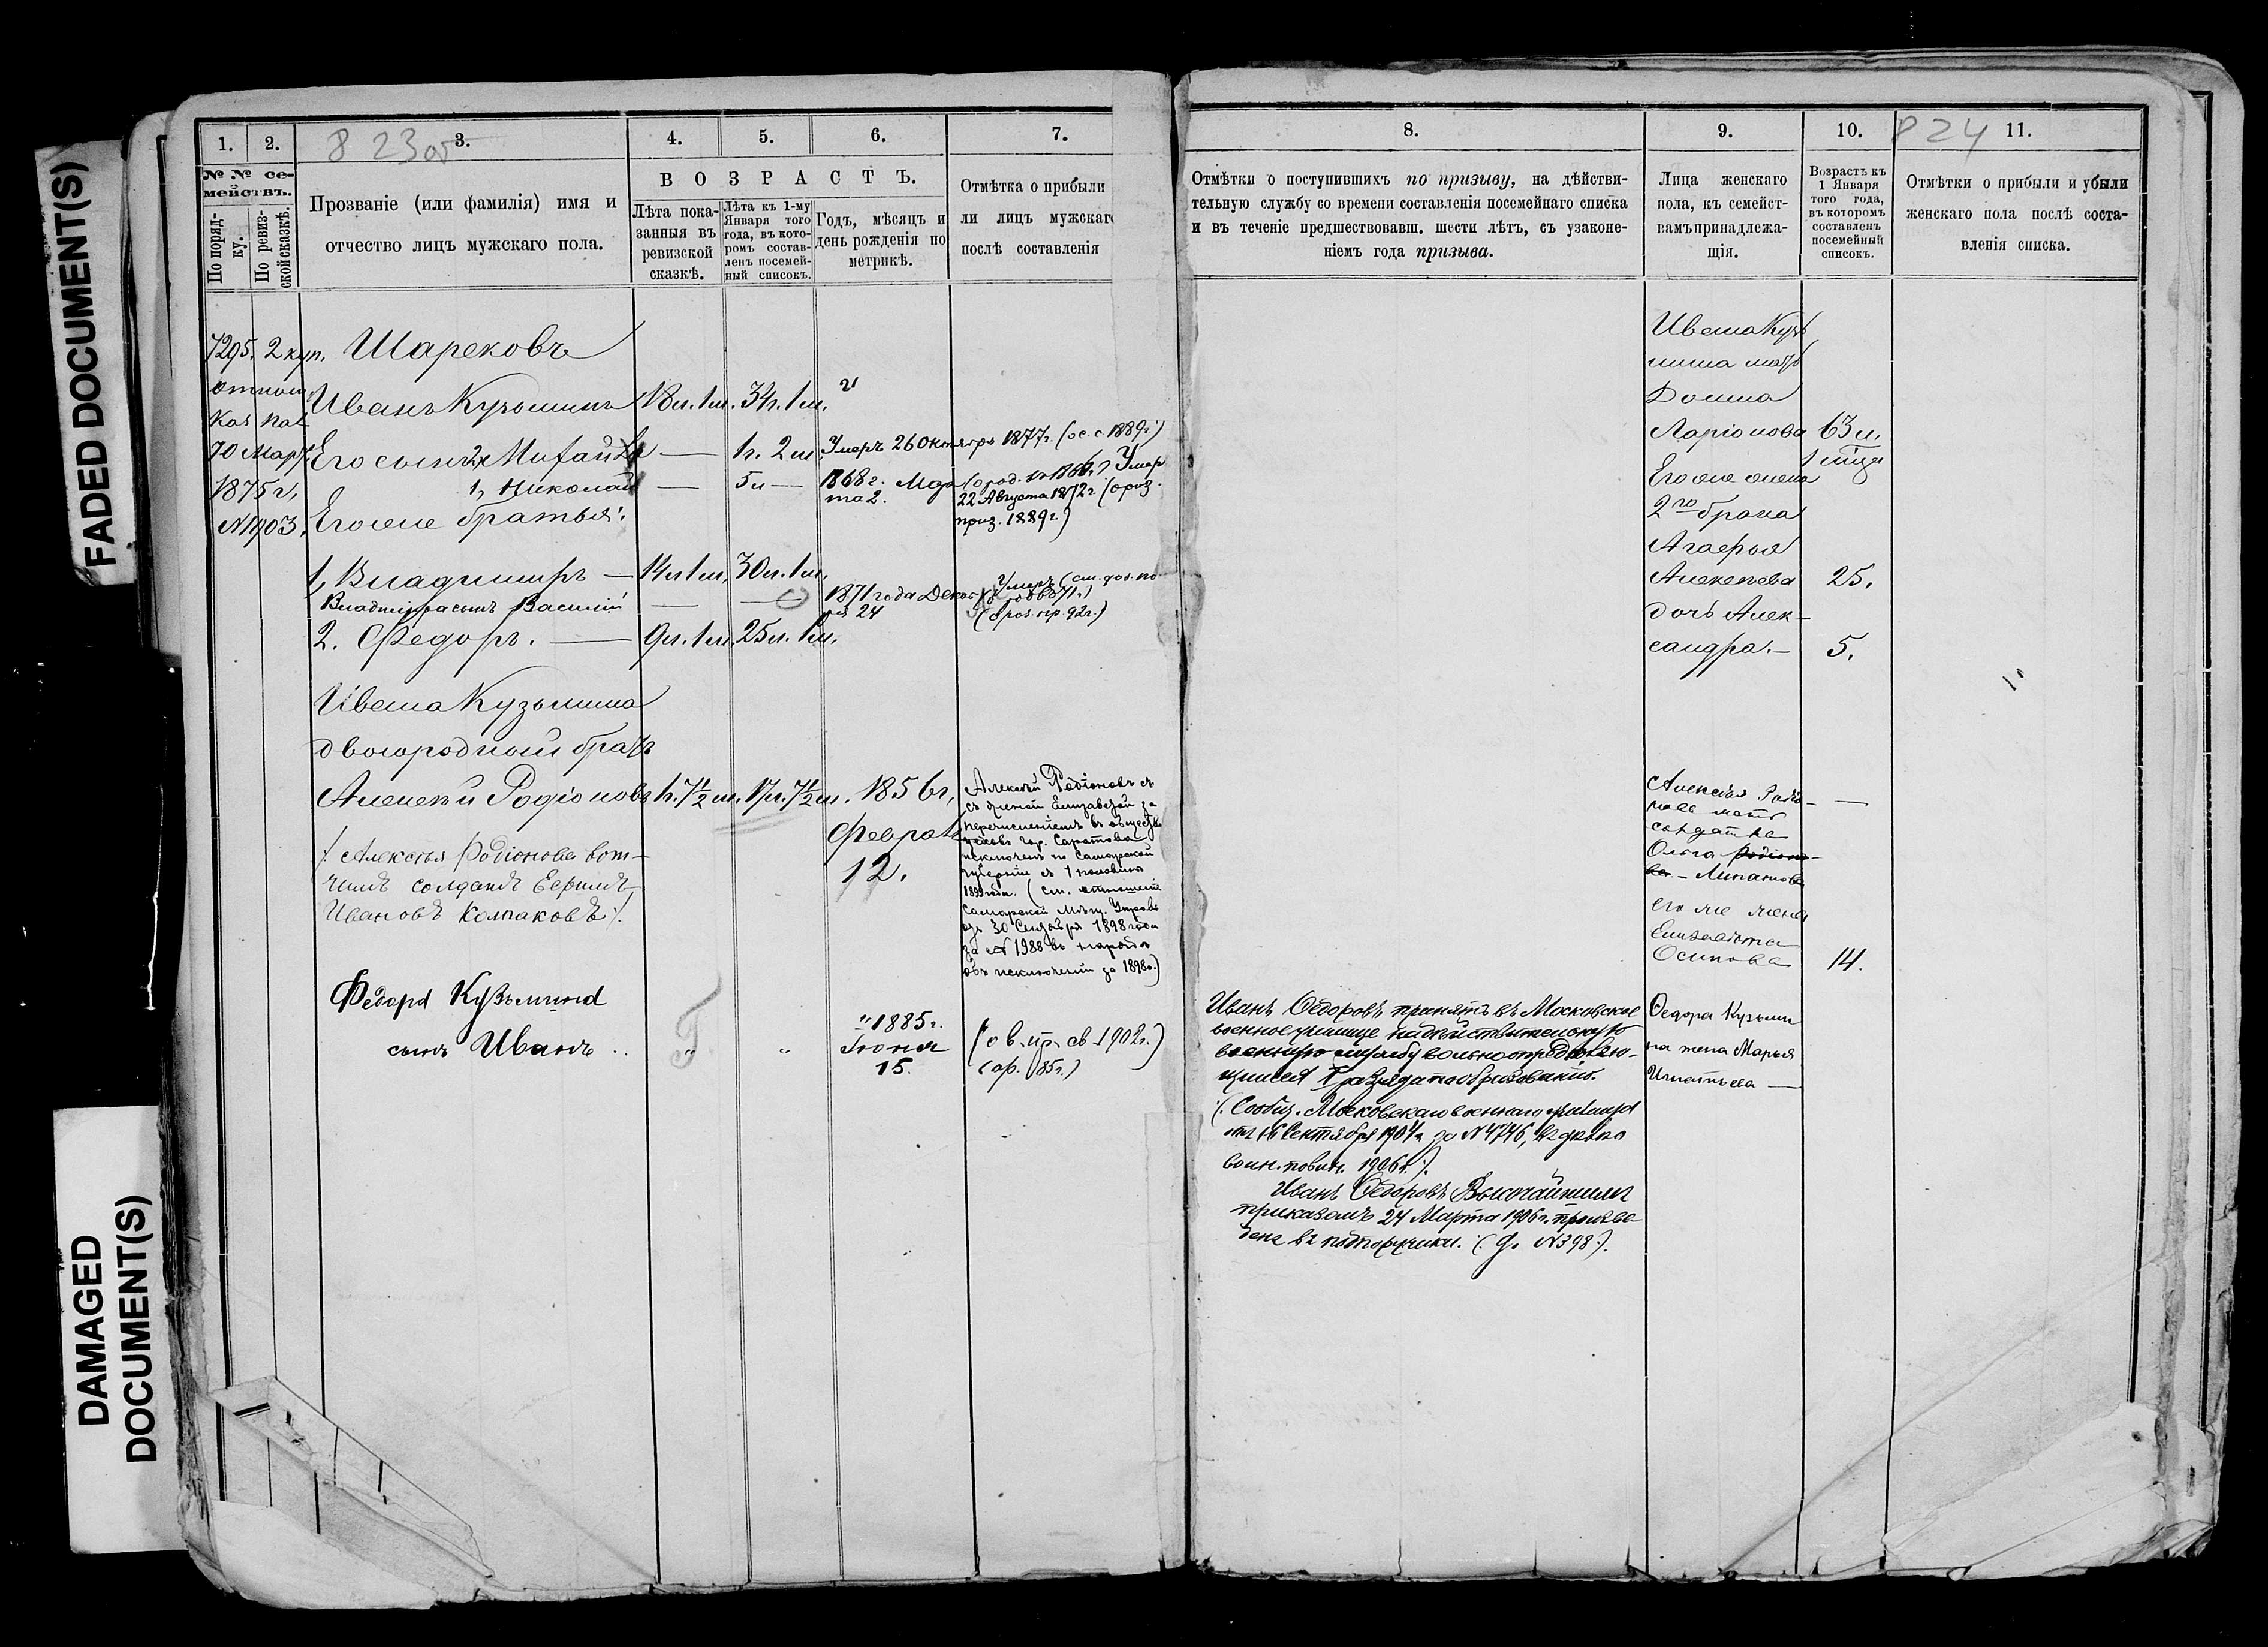 FADED DOCUMENT(S)
DAMAGED
DOCUMENT(S)
1.
2.
823 об
3.
4.
5.
6.
7.
№ № се-
мействъ.
По поряд-
ку.
По ревиз-
ской сказкѣ.
Прозваніе (или фамилія) имя и
отчество лицъ мужскаго пола.
ВОЗРАСТЪ.
Лѣта пока-
занныя въ
ревизской
сказкѣ.
Лѣта къ 1-му
Января того
года, въ кото-
ромъ состав-
ленъ посемей-
ный списокъ.
Годъ, мѣсяцъ и
день рожденія по
метрикѣ.
Отмѣтка о прибыли
ли лицъ мужскаго
послѣ составленія
7295. 2 куп. Шарековъ
10 Мар
1875 г.
№ 1903.
Иванъ Кузьминъ 18 л. 1 м. 34 г. 1 м.
Его сынъ 2, Михаилъ — 1 г. 2 м. Умеръ 26 Октября 1877 г. (ос. с 1889 г.)
1, Николай — 5 л — 1868 г. Мар
та 2.
Умер
22 Августа 1872 г.
приз. 1889 г.)
Его же братья:
1, Владимиръ — 14 л 1 м. 30 л. 1 м.
Владимира сынъ Василій — — 1871 года Декаб
ря 24
Умеръ
2. Федоръ. — 9 л. 1 м. 25 л. 1 м.
Ивана Кузьмина
двоюродный братъ
Алексѣй Родіоновъ 1 г. 7½ м. 17 л. 7½ м. 1856 г.
Феврал
12.
/: Алексѣя Родіонова вот-
чимъ солдатъ Ефимъ
Ивановъ Колпаковъ :/.
Алексѣй Родіоновъ съ
женой Елизаветой за
перечисленіемъ въ общество
гор. Саратова
исключенъ по Самарской
губерніи съ 1 половины
1899 года. (см. отношеніе
Самарской Мѣщ. Управы
отъ 30 1898 года
за № 1988
объ исключеніи за 1898 г.)
Федора Кузьмина
сынъ Иванъ ..
" 1885 г.
Іюня
15.
(о в. пр. св 1902 г.)
(ар. 85 г.)
8.
9.
10.
824
11.
Отмѣтки о поступившихъ по призыву, на дѣйстви-
тельную службу со времени составленія посемейнаго списка
и въ теченіе предшествовавш. шести лѣтъ, съ узаконе-
ніемъ года призыва.
Лица женскаго
пола, къ семейст-
вамъ принадлежа-
щія.
Возрастъ къ
1 Января
того года,
въ которомъ
составленъ
посемейный
списокъ.
Отмѣтки о прибыли и убыли
женскаго пола послѣ соста-
вленія списка.
Ивана Кузь
мина мать
Домна
Ларіонова 63 л.
Его же жена
2го брака
Агафья
Алексѣева 25.
дочь Алек-
сандра. — 5.
Алексѣя Родіо-
нова мать —
солдатка
Ольга Родіоно-
ва - Липатова
его же жена
Елизавета
Осипова 14.
Федора Кузьми
на жена Марья
Игнатьева —
Иванъ Ѳедоровъ принятъ въ Московское
военное училище на дѣйствительную
военную службу вольноопредѣляю-
щимся 1 разряда по образованію.
(: Сообщ. Московскаго военнаго училища
отъ 16 Сентября 1904 г. за № 4746, въ дѣлѣ о
воин. повин. 1906 г. :).
Иванъ Ѳедоровъ Высочайшимъ
приказомъ 24 Марта 1906 г. произве
денъ въ подпоручики. (: д. № 398 :).